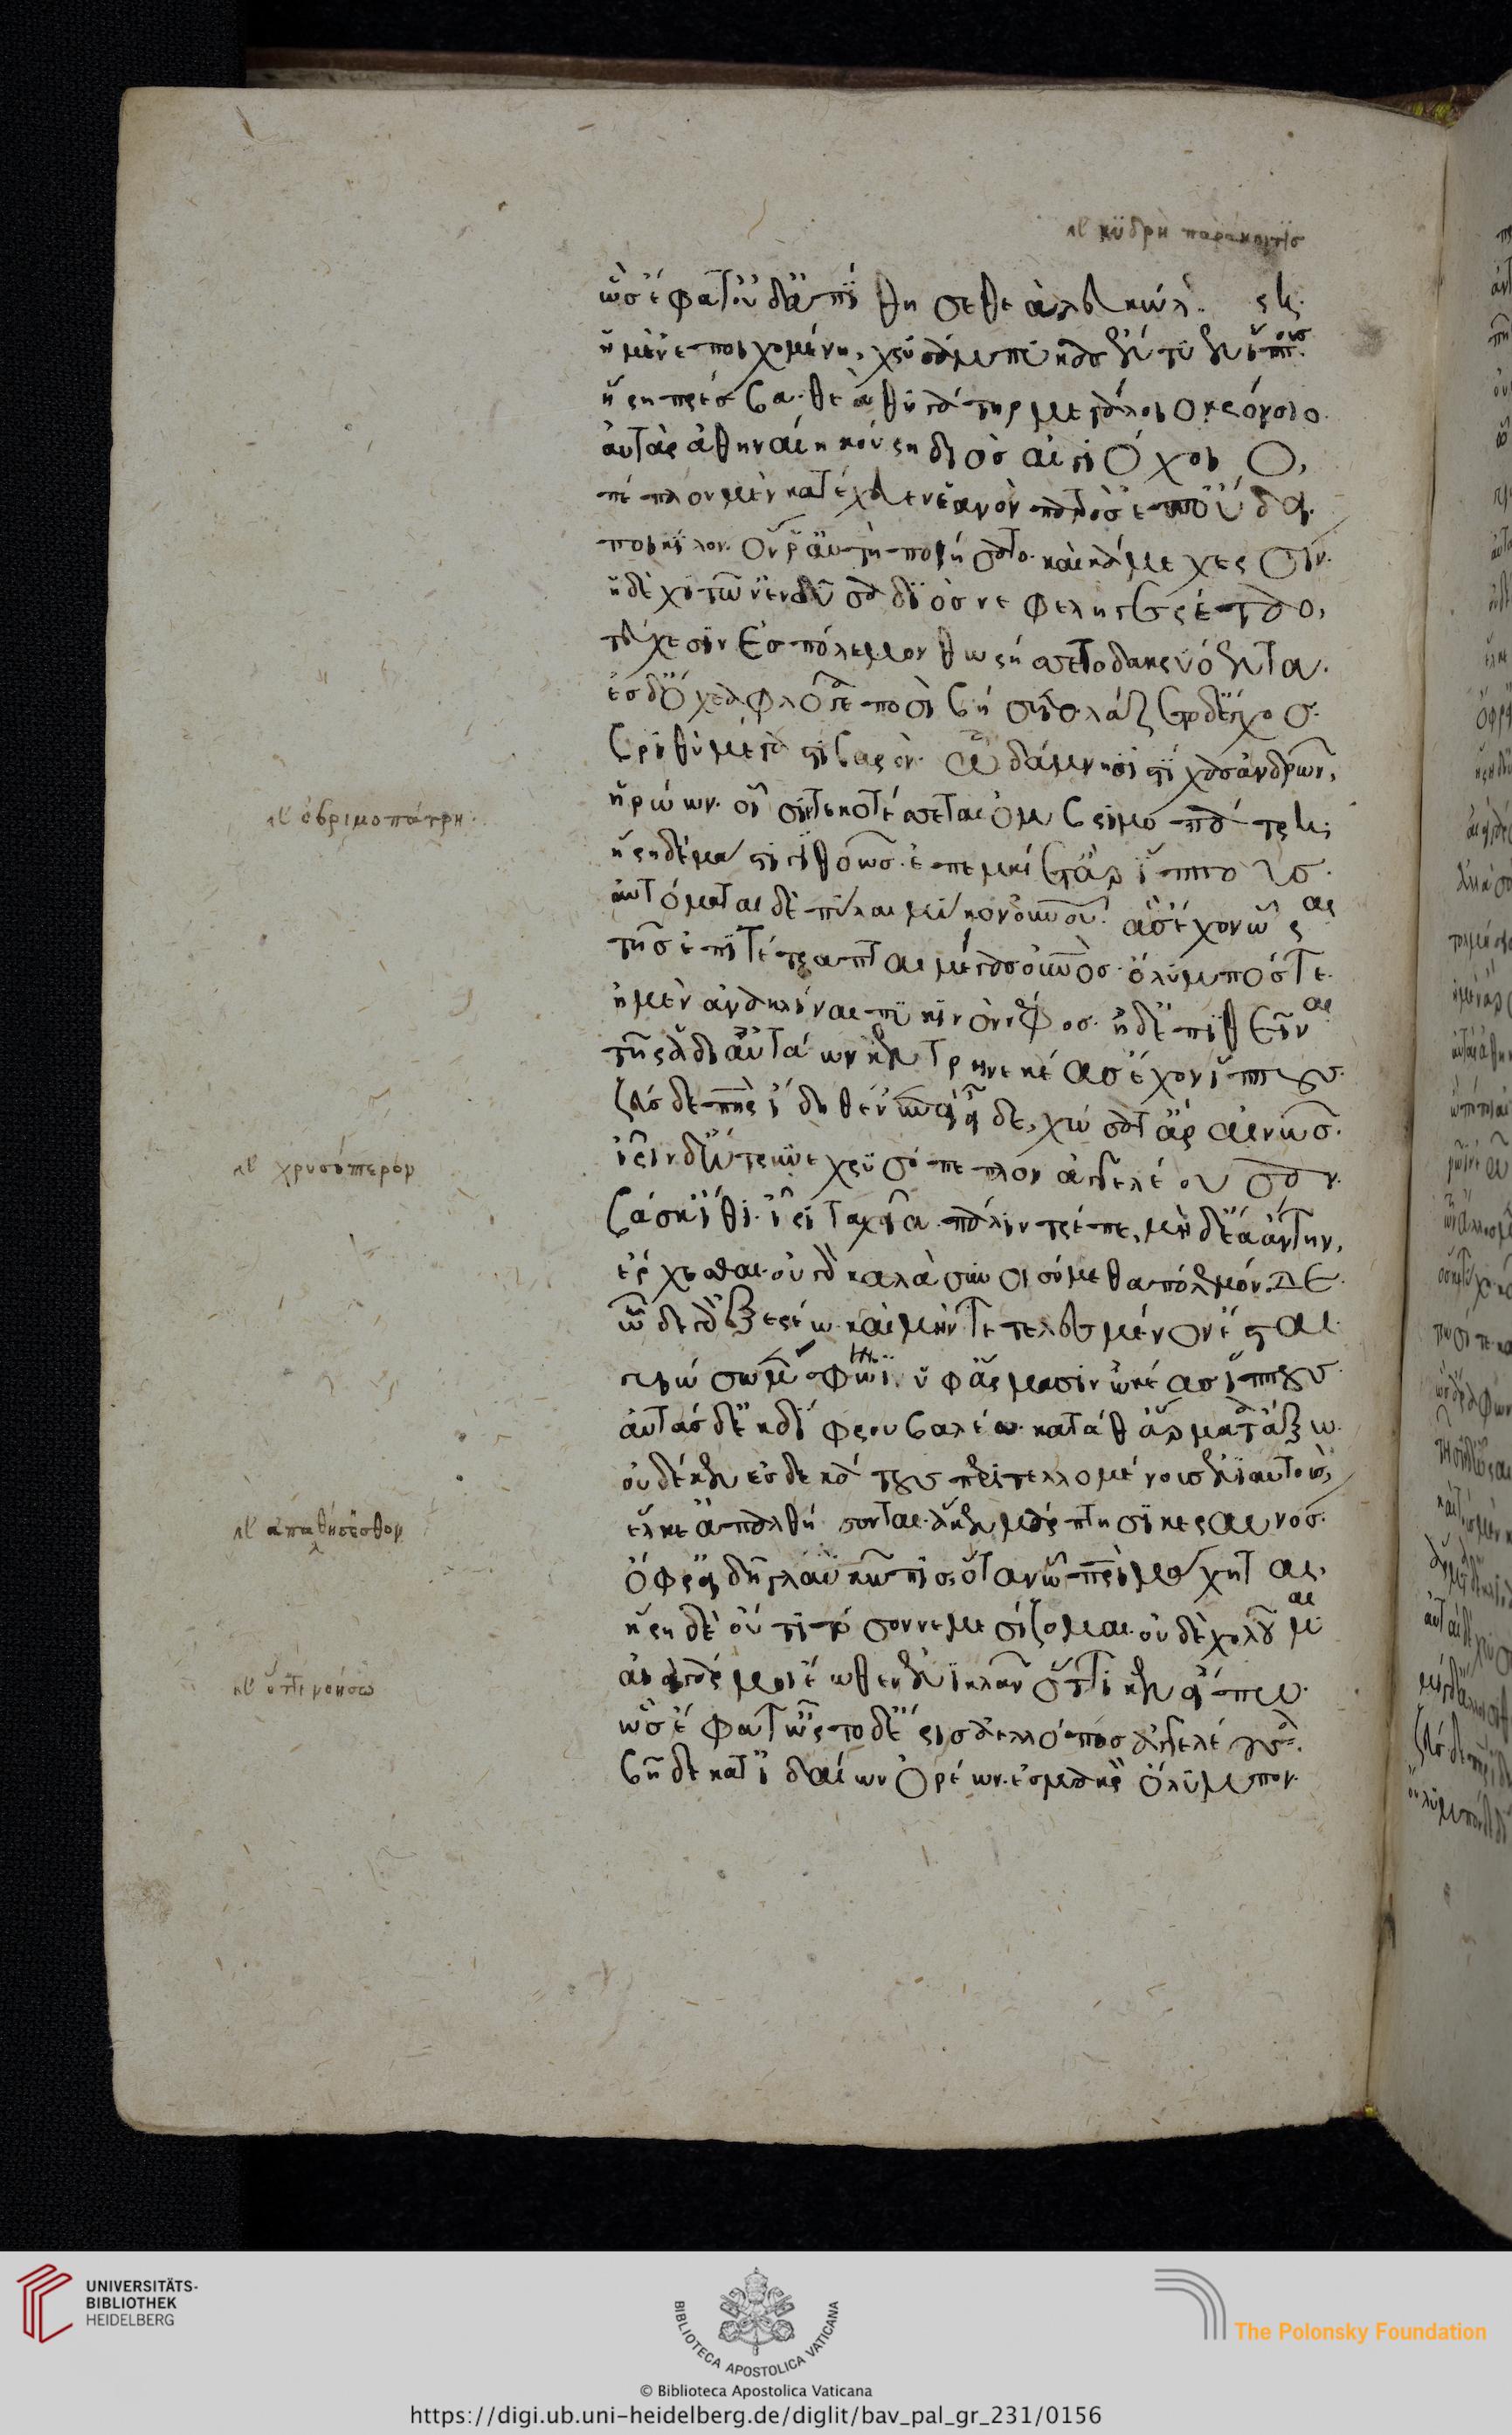 κῡδρὴ παράκοιτις
ὣς ἔφατ' οὐδ' ἀπίθησε θεὰ λευκώλ. ρη.
ἡ μὲν ἐποιχομένη, χρυσάμπυκας ἔντυεν ἵππους.
ἥρη πρέσβα θεὰ θυγάτηρ μεγάλοιο κρόνοιο.
αὐτὰρ ἀθηναίη κούρη διὸς αἰγιόχοιο,
πέπλον μὲν κατέχευεν ἑανὸν πατρὸς ἐπ' οὔδει.
ποικίλον. ὅν ῥ' αὐτὴ ποιήσατο. καὶ κάμε χερσίν.
ἡ δὲ χιτῶν' ἐνδῦσα διὸς νεφεληγερέταο,
τεύχεσιν ἐς πόλεμον θωρήσσετο δακρυόεντα.
ἐς δ' ὄχεα φλόγεα ποσὶ βήσετο. λάζετο δ' ἔγχος.
βριθὺ μέγα στιβαρόν. τῷ δάμνησι στίχας ἀνδρῶν,
ἡρώων. οἷσίν τε κοτέσσεται ὀμβριμοπάτρη·
ὀβριμοπάτρη.
ἥρη δὲ μάστιγι θοῶς ἐπεμαίετ' ἄρ' ἵππους.
αὐτόμαται δὲ πύλαι μύκον οὐρανοῦ. ἃς ἔχον ὧραι
τῇς ἐπιτέτραπται μέγας οὐρανὸς ὄλυμπός τε.
ἠμὲν ἀνακλῖναι πυκινὸν νέφος. ἠδ' ἐπιθεῖναι
τῇ ῥα δι' αὐτάων κεντρηνεκέας ἔχον ἵππους.
ζεὺς δὲ πατὴρ ἴδηθεν ἐπεὶ ἴδε, χώσατ' ἄρ' αἰνῶς.
ἶριν δ' ὤτρυνε χρυσόπεπλον ἀγγελέουσαν.
χρυσόπτερον
βάσκ' ἴθι ἶρι ταχεῖα. πάλιν τρέπε, μὴ δ' ἔα ἄντην,
ἔρχεσθαι. οὐ γὰρ καλὰ συνοισόμεθα πόλεμόν δε.
ὧδε γὰρ ἐξερέω. καὶ μὴν τετελεσμένον ἔσται.
γυιώσω μέν σφωϊν ὑφ' ἅρμασιν ὠκέας ἵππους.
αὐτὰς δ' ἐκ δίφρου βαλέω. κατά θ' ἅρματα ἄξω.
οὐδέ κεν ἐς δεκάτους περιτελλομένους ἐνιαυτούς,
ἕλκε' ἀπαλθήσονται. ἅ κεν μάρπτησι κεραυνός.
ἀπαλθήσεσθον
ὄφρ' εἰδῇ γλαυκῶπις. ὅτ' ἂν ᾧ πατρὶ μάχηται.
ἥρη δὲ οὔ τι τόσον νεμεσίζομαι. οὐδὲ χολοῦμαι
αἰεὶ γάρ μοι ἔωθεν ἐνικλᾶν ὅττι κεν εἴπω.
ὅττι νοήσω
ὣς ἔφατ' ὦρτο δὲ ἶρις ἀελλόπος ἀγγελέουσα.
βῆ δὲ κατ' ἰδαίων ὀρέων. ἐς μακρὸν ὄλυμπον.
UNIVERSITÄTS-
BIBLIOTHEK
HEIDELBERG
BIBLIOTECA APOSTOLICA VATICANA
The Polonsky Foundation
© Biblioteca Apostolica Vaticana
https://digi.ub.uni-heidelberg.de/diglit/bav_pal_gr_231/0156